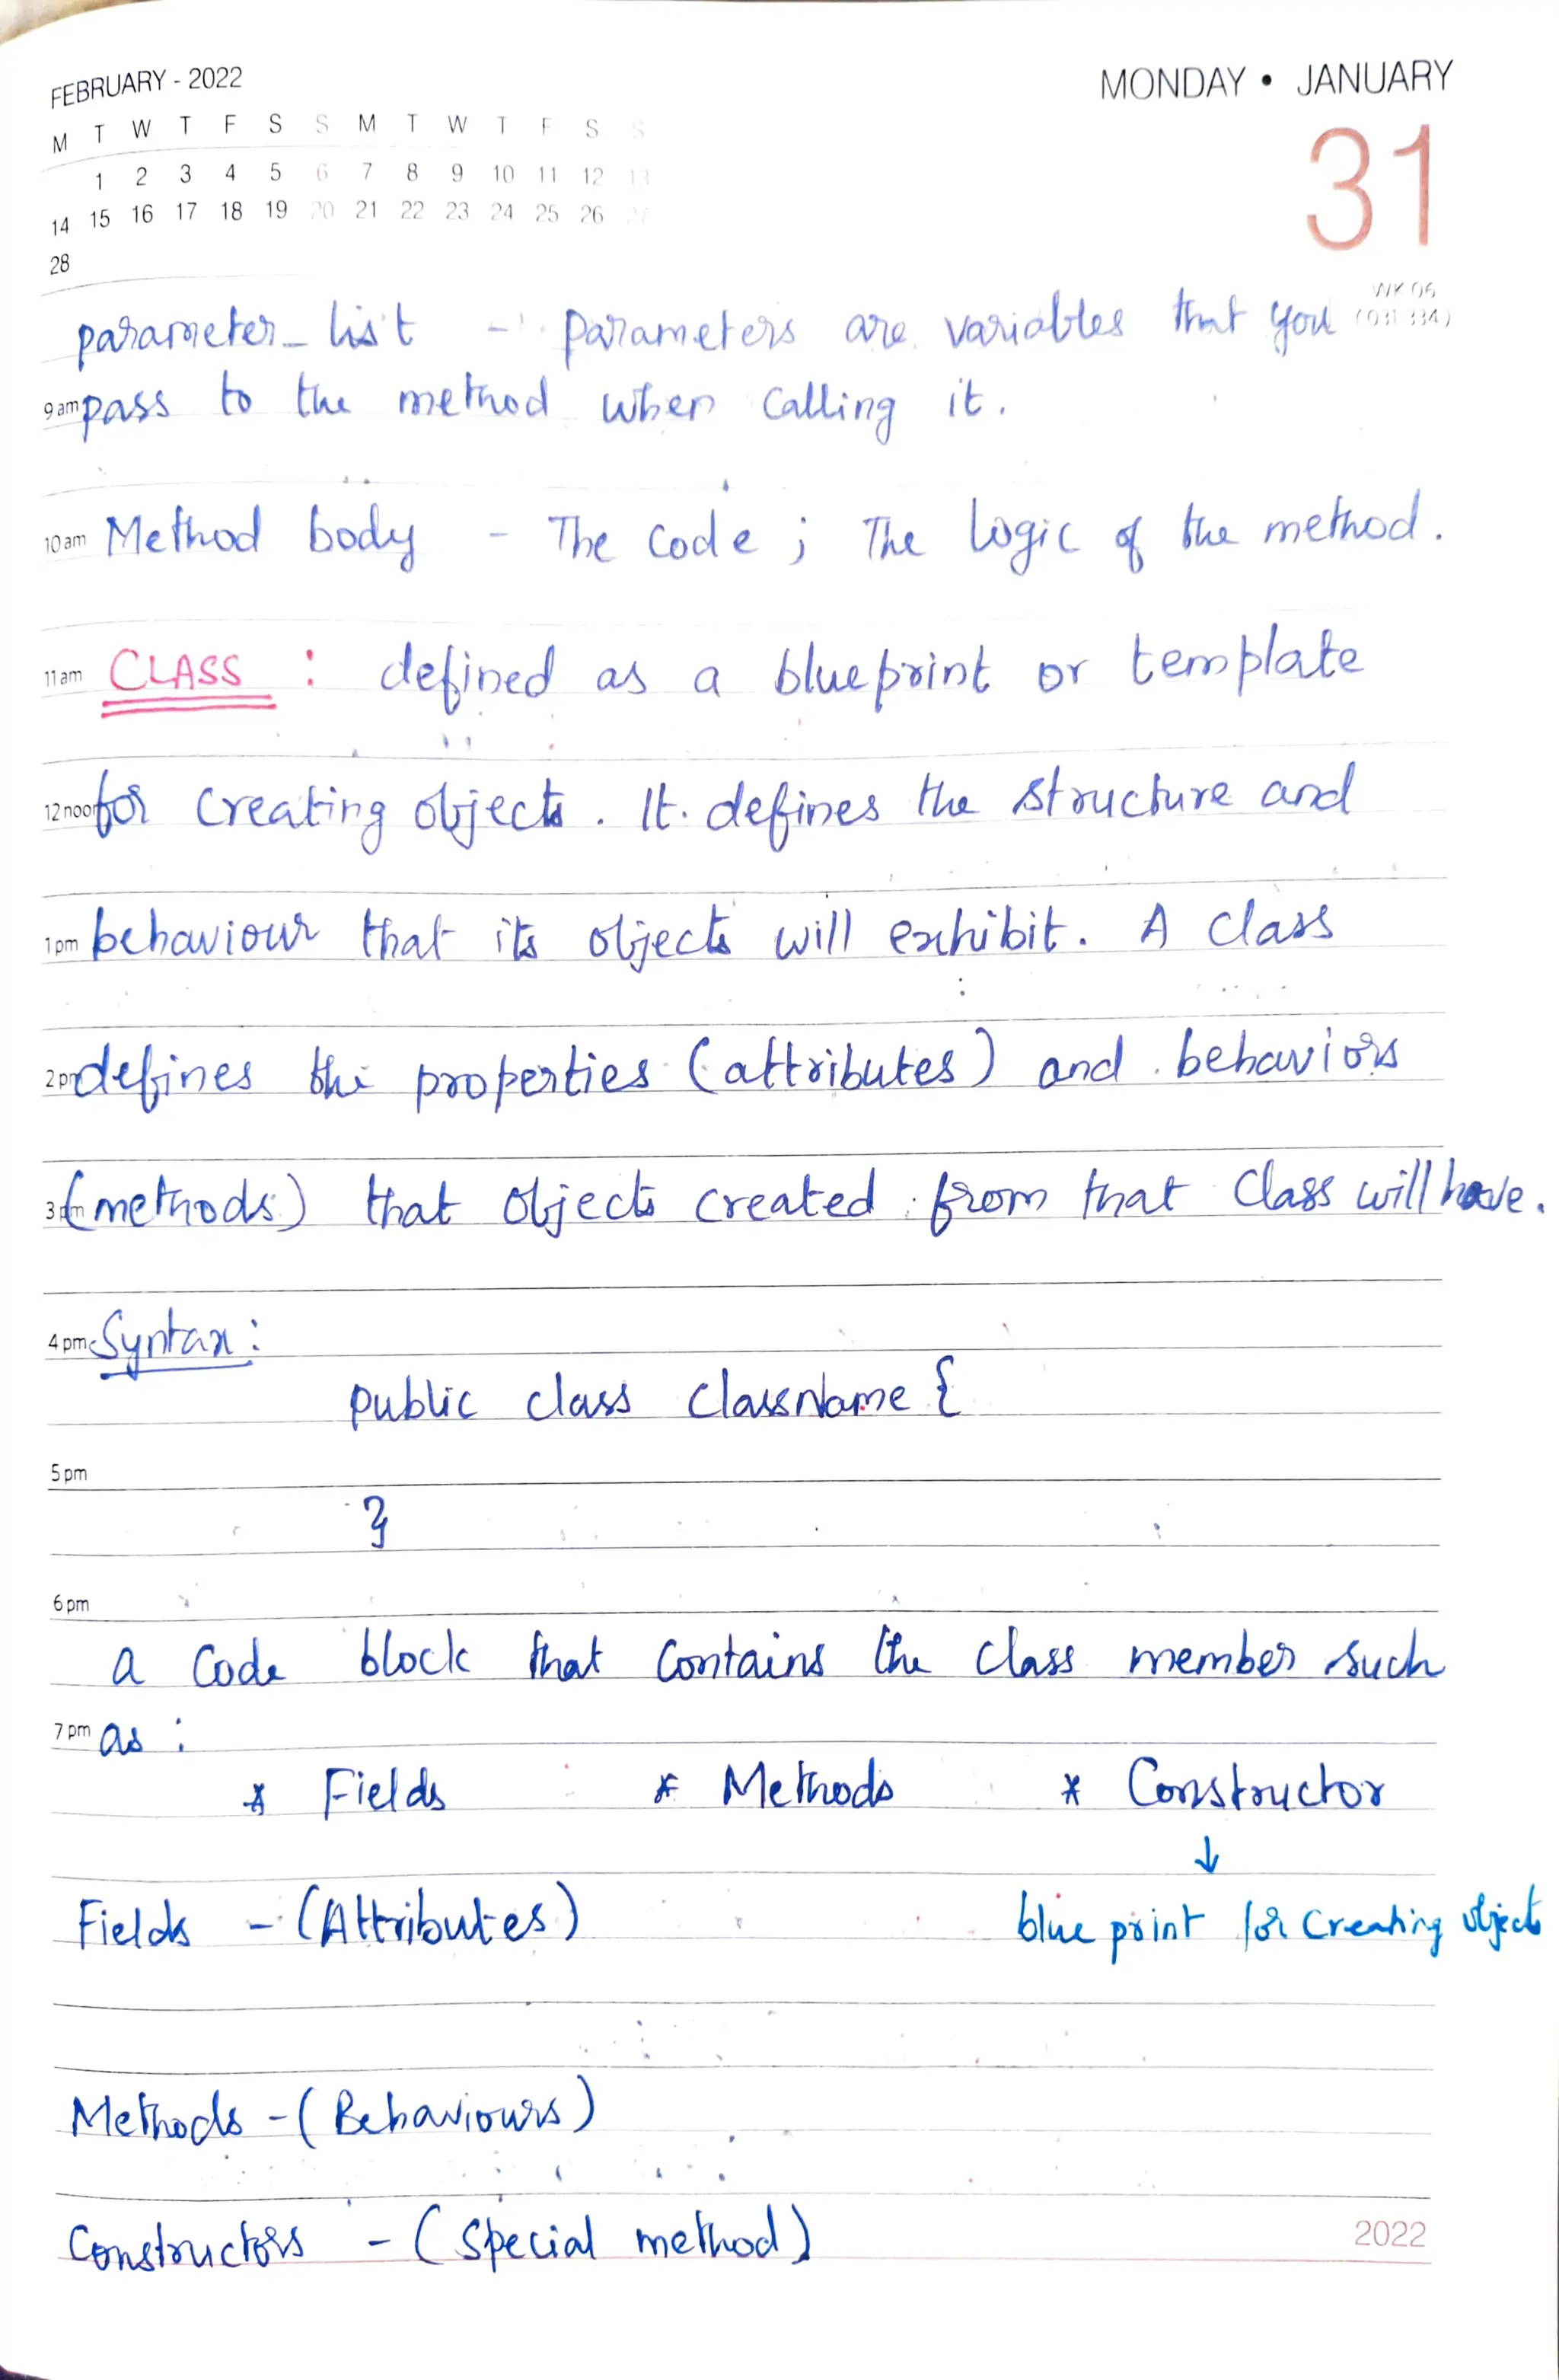 FEBRUARY - 2022
MONDAY • JANUARY
M T W T F S S M T W T F S S
31
1 2 3 4 5 6 7 8 9 10 11 12 13
14 15 16 17 18 19 20 21 22 23 24 25 26 27
28
WK 06
parameter_list - parameters are variables that you
(031 334)
9 am pass to the method when calling it.
10 am Method body - The code ; The logic of the method.
11 am CLASS : defined as a blueprint or template
12 noon for creating objects. It defines the structure and
1 pm behaviour that its objects will exhibit. A class
2 pm defines the properties (attributes) and behaviors
3 pm (methods) that objects created from that class will have.
4 pm Syntax :
public class ClassName {
5 pm
}
6 pm
a code block that contains the class member such
7 pm as :
* Fields * Methods * Constructor
↓
Fields - (Attributes) blue print for creating objects
Methods - (Behaviours)
Constructors - (special method)
2022